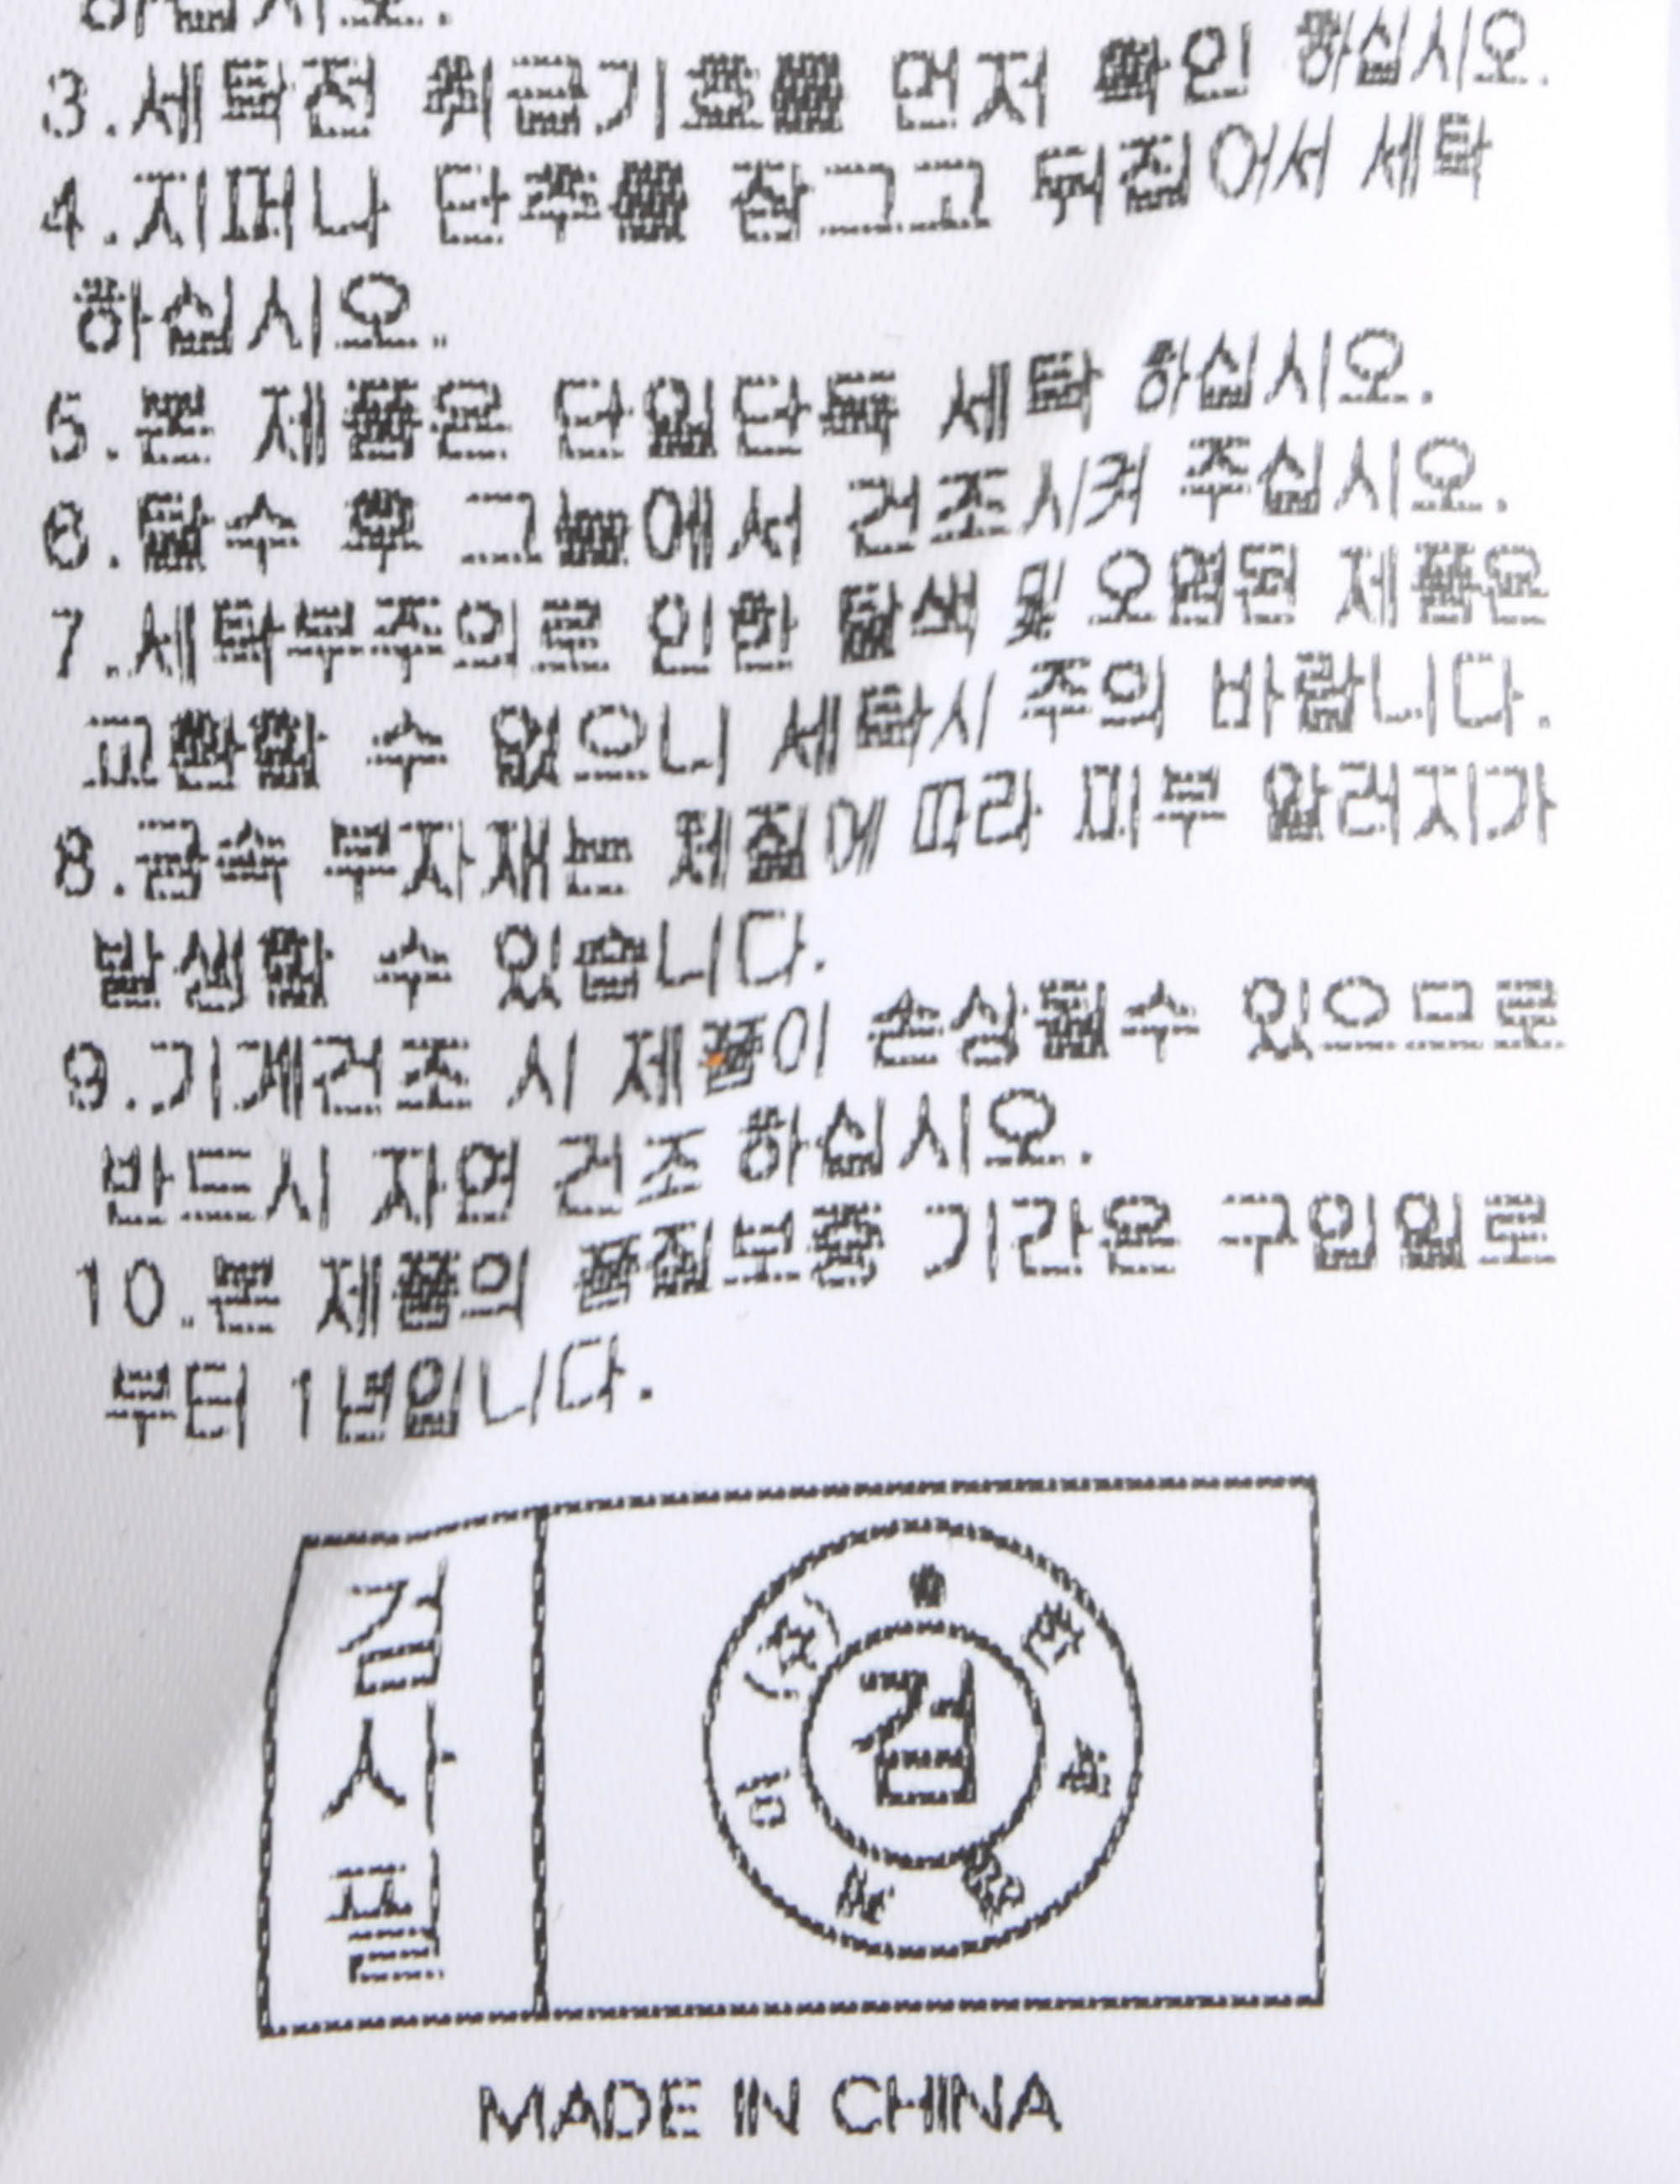 하십시오.
3.세탁전 취급기호를 먼저 확인 하십시오.
4.지퍼나 단추를 잠그고 뒤집어서 세탁
하십시오.
5.본 제품은 단일단독 세탁 하십시오.
6.탈수 후 그늘에서 건조시켜 주십시오.
7.세탁부주의로 인한 탈색 및 오염된 제품은
교환할 수 없으니 세탁시 주의 바랍니다.
8.금속 부자재는 체질에 따라 피부 알러지가
발생할 수 있습니다.
9.기계건조 시 제품이 손상될수 있으므로
반드시 자연 건조 하십시오.
10.본 제품의 품질보증 기간은 구입일로
부터 1년입니다.
검사필
검
MADE IN CHINA